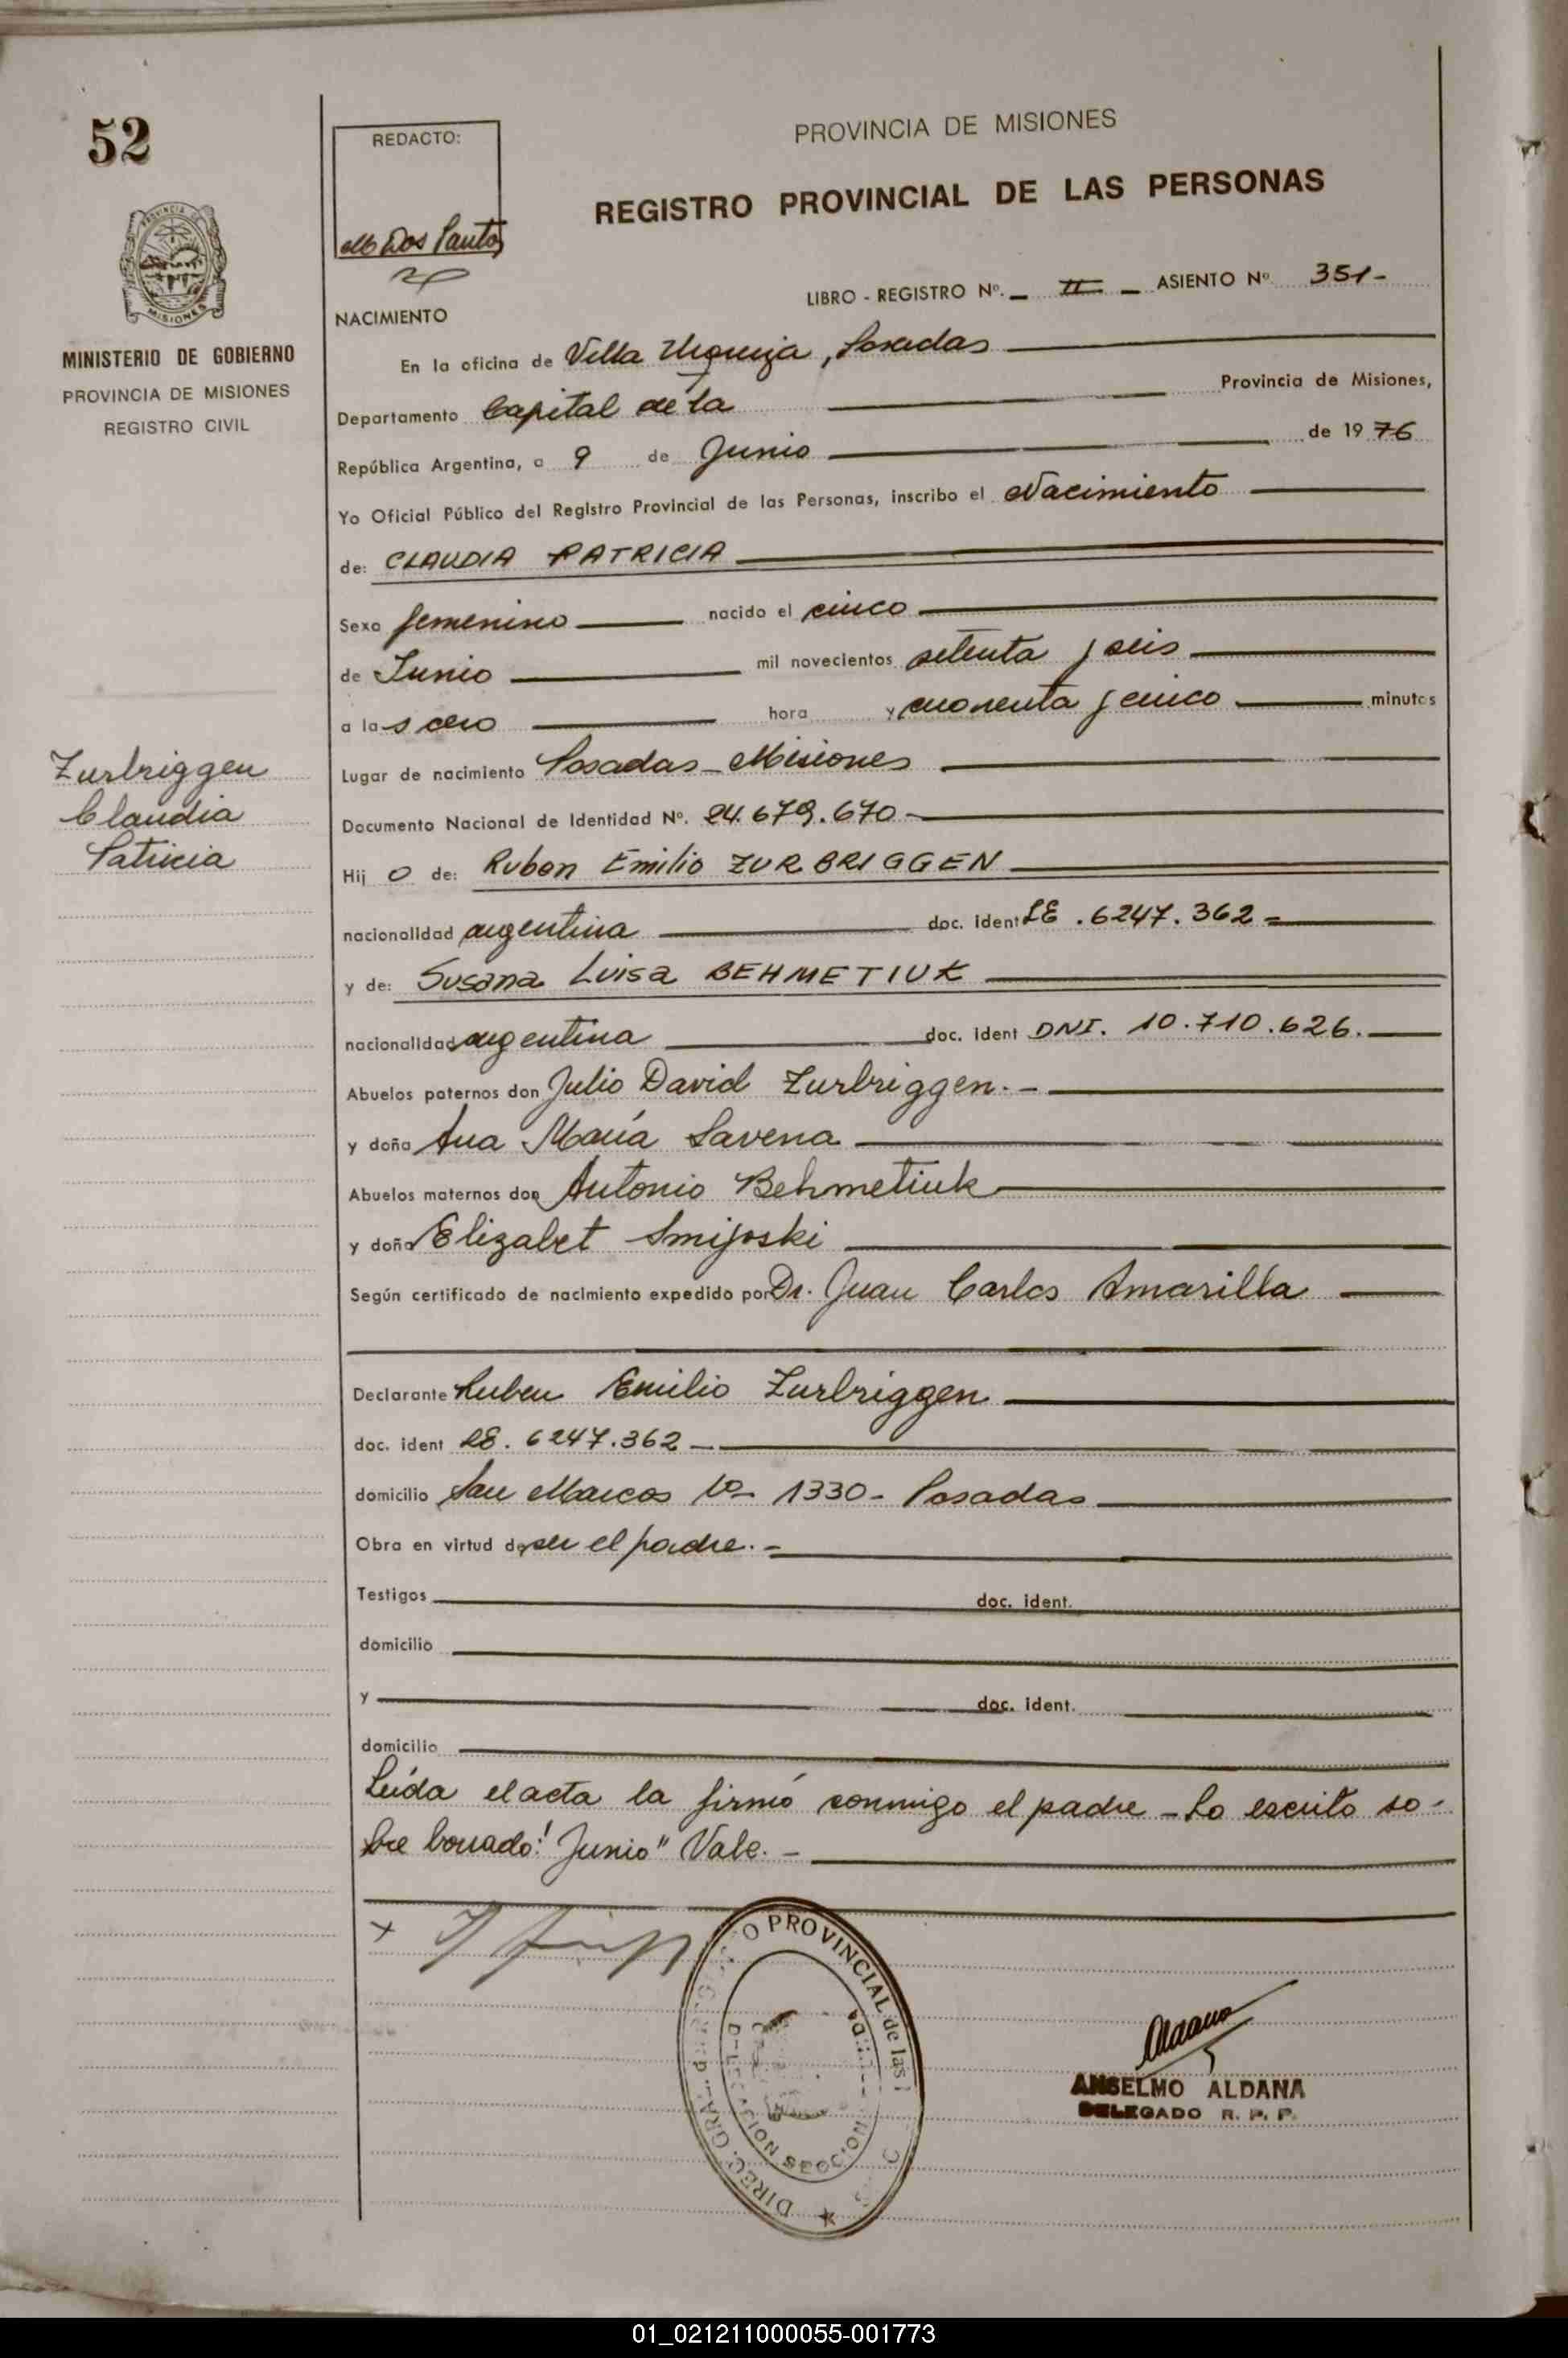 52
REDACTO:
M Dos Santos
PROVINCIA DE MISIONES
REGISTRO PROVINCIAL DE LAS PERSONAS
PROVINCIA DE
MISIONES
MINISTERIO DE GOBIERNO
PROVINCIA DE MISIONES
REGISTRO CIVIL
LIBRO - REGISTRO Nº. _ II _ ASIENTO Nº 351-
NACIMIENTO
En la oficina de Villa Urquiza, Posadas
Departamento Capital de la Provincia de Misiones,
República Argentina, a 9 de Junio de 1976
Yo Oficial Público del Registro Provincial de las Personas, inscribo el Nacimiento
de: CLAUDIA PATRICIA
Sexo femenino nacido el cinco
de Junio mil novecientos setenta y seis
a las cero hora y cuarenta y cinco minutos
Zurbriggen
Claudia
Patricia
Lugar de nacimiento Posadas - Misiones
Documento Nacional de Identidad Nº. 24.679.670-
Hij o de: Ruben Emilio ZURBRIGGEN
nacionalidad argentina doc. ident LE .6247.362=
y de: Susana Luisa BEHMETIUK
nacionalidad argentina doc. ident DNI. 10.710.626.
Abuelos paternos don Julio David Zurbriggen.-
y doña Ana María Savena
Abuelos maternos don Antonio Behmetiuk
y doña Elizabet Smijoski
Según certificado de nacimiento expedido por Dr. Juan Carlos Amarilla
Declarante Ruben Emilio Zurbriggen
doc. ident LE. 6247.362-
domicilio San Marcos Nº 1330- Posadas
Obra en virtud de ser el padre.-
Testigos doc. ident.
domicilio
y doc. ident.
domicilio
Leída el acta la firmó conmigo el padre - Lo escrito so-
bre borrado: "Junio" Vale.-
x
PROVINCIAL de las
DIREC. GRAL.
SECCION
Aldana
ANSELMO ALDANA
DELEGADO R. P. P.
01_021211000055-001773